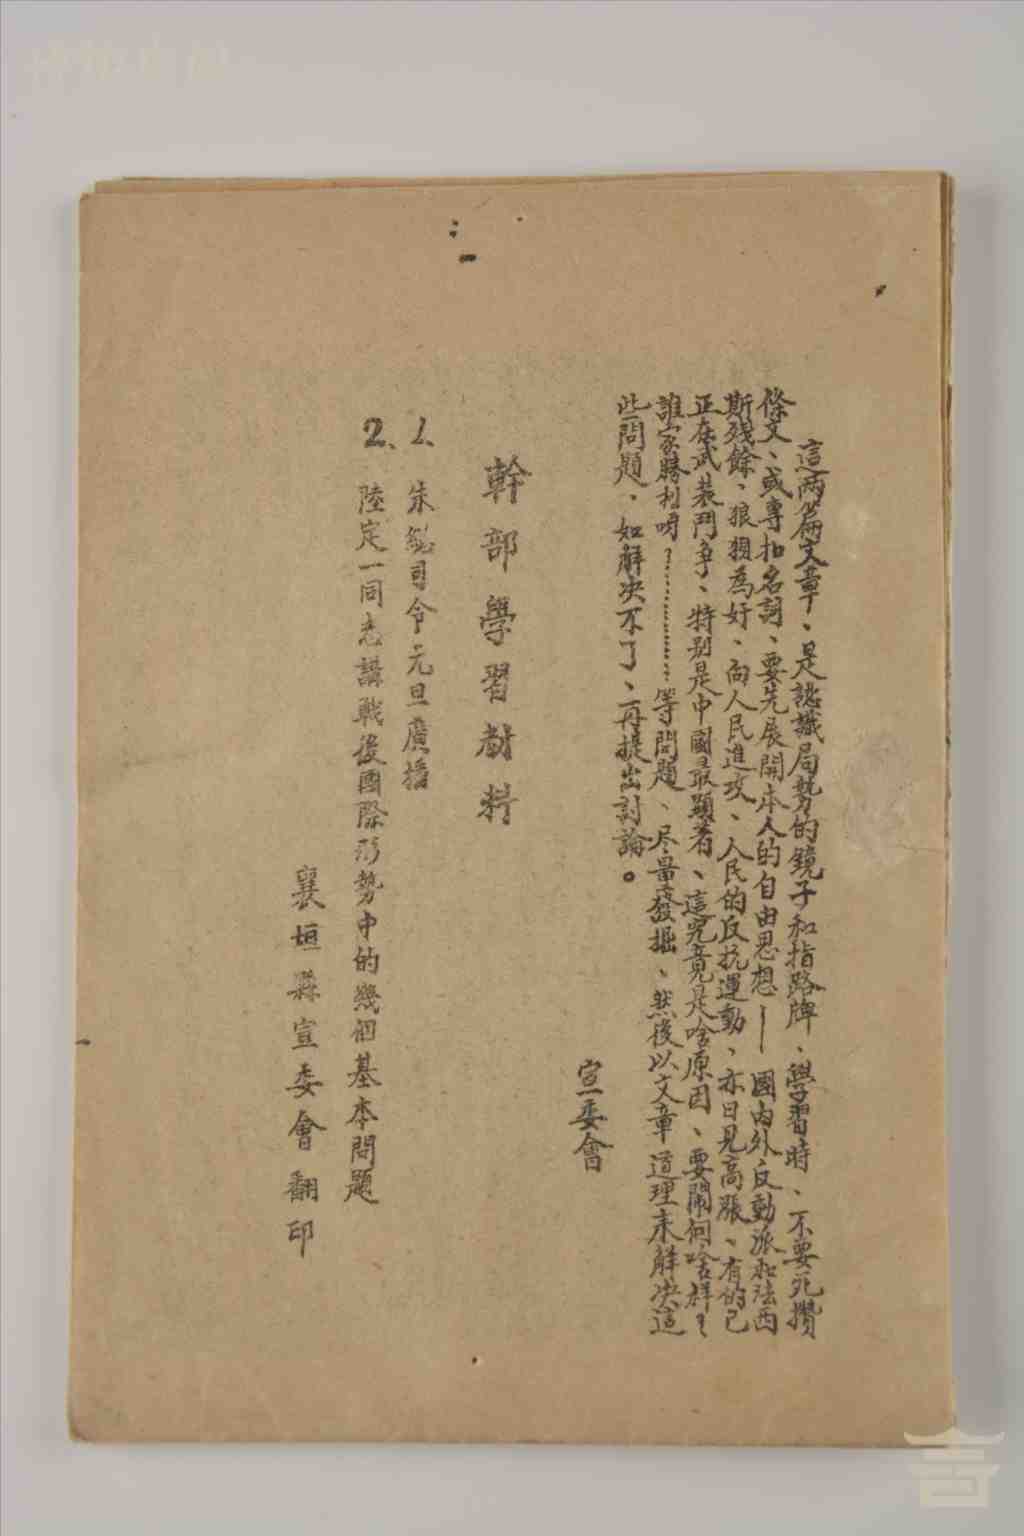 這兩篇文章、是認識局勢的鏡子和指路牌、學習時、不要死攢
條文、或專扣名詞、要先展開本人的自由思想——國內外反動派和法西
斯殘餘、狼狽為奸、向人民進攻、人民的反抗運動、亦日見高漲、有的已
正在武裝鬥爭、特别是中國最顯著、這究竟是啥原因、要鬧個啥樣！
誰家勝利呀？…………等問題、尽量發掘、然後以文章道理來解决這
些問題、如解决不了、再提出討論。
宣委會
幹部學習材料
1、朱總司令元旦廣播
2、陸定一同志講戰後國際形勢中的幾個基本問題
襄垣縣宣委會翻印